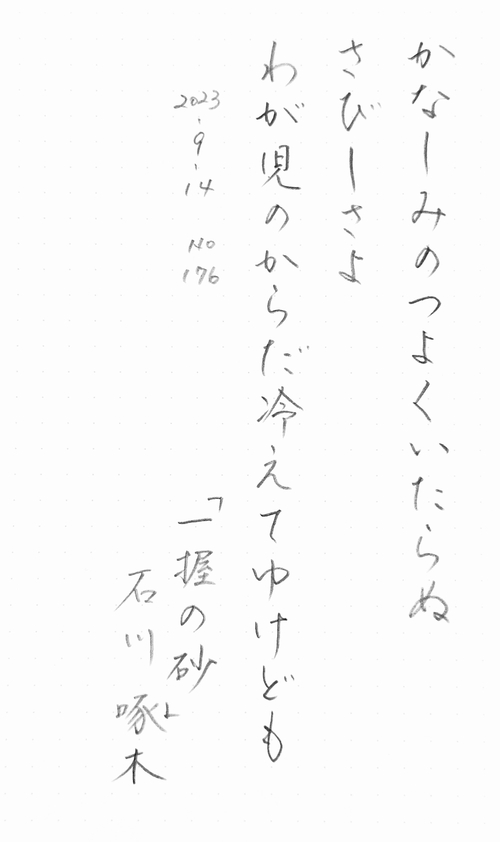 かなしみのつよくいたらぬ
さびしさよ
わが児のからだ冷えてゆけども
2023.9.14 No 176
「一握の砂」
石川啄木